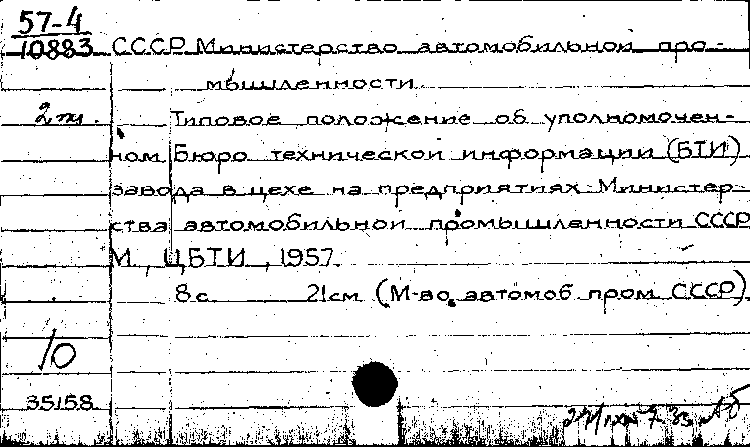 57-4
10883 СССР Министерство автомобильной про-
мышленности
2 эк. Типовое положение об уполномочен-
ном Бюро технической информации (БТИ)
завода в цехе на предприятиях Министер-
ства автомобильной промышленности СССР
М., ЦБТИ, 1957.
8 с. 21 см (М-во автомоб. пром. СССР)
10
35158